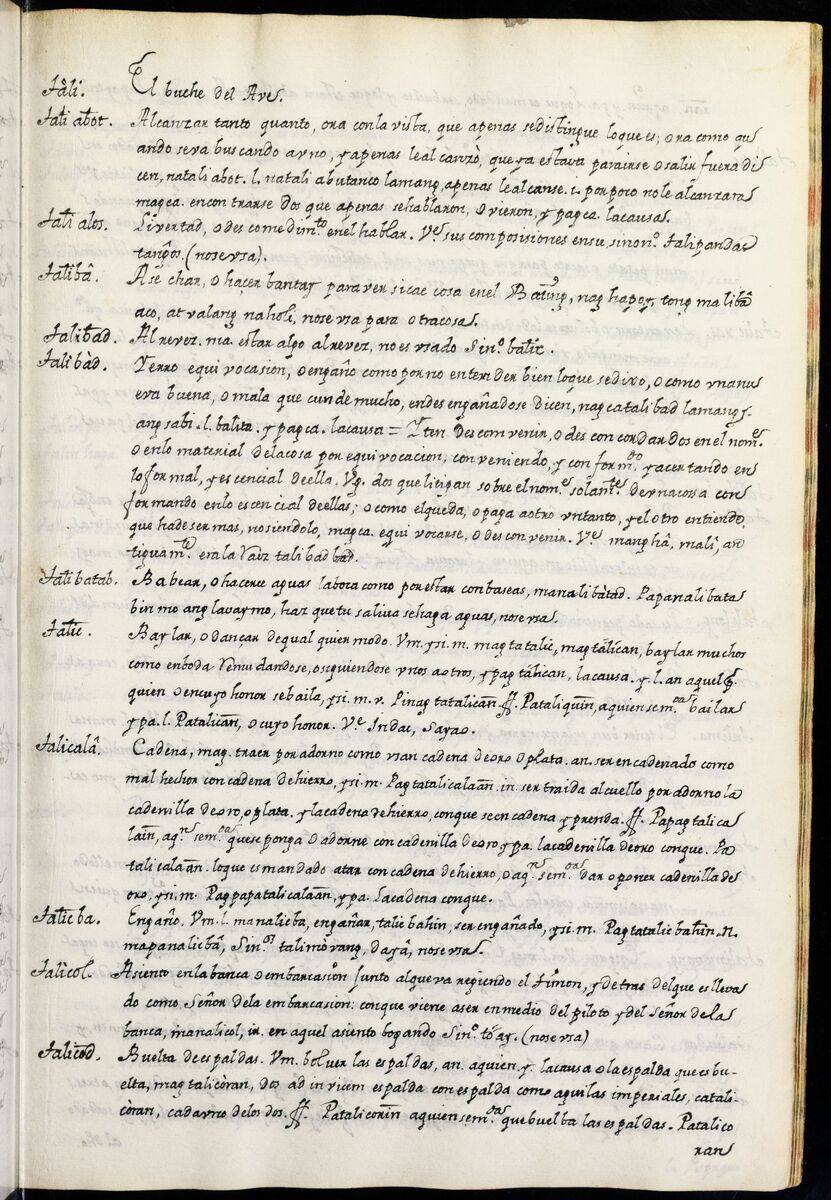 Tâli. El buche del Ave.
Tali abot. Alcanzar tanto quanto, ora con la vista, que apenas sedistingue loque es; ora como qu
ando seva buscando a vno, y apenas leal canzò, que ya estava paráirse o salir fuera di
cen, natali abot. l. natali abutanco lamang, apenas le alcanse. i. por poco nole alcanzara
magca. encon trarse dos que apenas sehablaron, o vieron, y pagca. lacausa.
Tali alos. Livertad, o des comedim.to en el hablar. V.e sus composisiones ensu sinon.º Talipandas
tangos. (nose vsa).
Talibâ. Ase char, o haçer bantay para ver sicae cosa en el
aco, at valang naholi, nose vsa para otra cosa.
Talibad. Al revez. ma. estar algo al revez, no es vsado Sin.º balic.
Talibàd. Yerro equi vocasion, o engaño como por no enten der bien loque sedixo, o como vna nu
eva buena, o mala que cun de mucho, en des engañadose dicen, nagcatalibad lamang y.
ang sabi. l. balita. y pagca. lacausa = Yten Des con venir, o des con cordar dos en el nom.e
o enlo material dela cosa por equi vocacion; con veniendo, y con form.do y acer tando en
lo formal, y es cencial de ella. Vg. dos que litigan sobre el nom.e solam.te de vna cossa con
formando enlo es cencial de ellas; o como el queda, o paga a otro vn tanto, y el otro entiende,
que hade ser mas, no siendolo, magca. equi vocarse, o des con venir. V.e manghâ, malî, an
tiguam.te era la Raiz talibad bad.
Tali batab. Babear, o hacerse aguas la boca como por estar con baseas, manalibàtad. Papanalibata
bin mo ang lavay mo, haz que tu saliva sehaga aguas, nose vsa.
Talic. Baylar, o dançar de qual quier modo. Vm. y si. m. mag tatalic, mag tàlican, baylar muchos
como en boda remudandose, o siguiendose vnos a otros, y pag tàlican, lacausa. y l. an aquel
quien o en cuyo honor sebaila, y si. m. r. Pinag tatalican. ff. Pataliquin, a quien sem.da bailar
y pa. l. Patalican, o cuyo honor. V.e Indac, Sayao.
Talicalâ. Cadena, mag. traer por adorno como vsan cadena de oro o plata. an. ser en cadenado como
mal hechor con cadena de hierro, y si. m. Pag tatalicalaan. in. ser traida al cuello por adorno la
cadenilla de oro, o plata. y la cadena de hierro, con que se en cadena y prenda. ff. Papag talica
lain, aq.n sem.da que se ponga o adorne con cadenilla de oro, y pa. la cadenilla de oro con que. Pa
talicalaan. lo que es mandado atar con cadena de hierro, o aq.n sem.da dar o poner cadenilla de
oro, y si. m. Pag papatalicalaan, y pa. La cadena con que.
Talic ba. Engaño. Vm. l. manalicba, engañar, talic bahin, ser engañado, y si. m. Pag tatalic bahin. n.
mapanalicbâ, Sin.os talimòvang, dayâ, nose vsa.
Talicol. Asiento en la banca o embarcasion Junto al que va regiendo el timon, y de tras del que es lleva
do como Señor de la embarcasion: con que viene aser en medio del piloto y del Señor de la
banca, manalicol, in. en aquel asiento bogando Sin.º toáy. (nose vsa)
Talicod. Buelta de es paldas. Vm. bolver las es paldas, an. a quien y. la causa o la espalda que es bu
elta, mag talicòran, dos ad in vicem espalda con espalda como aguilas imperiales, catali
còran, cada vno de los dos. ff. Patalicorin a quien sem.da que buelba las es paldas. Patalico
ran